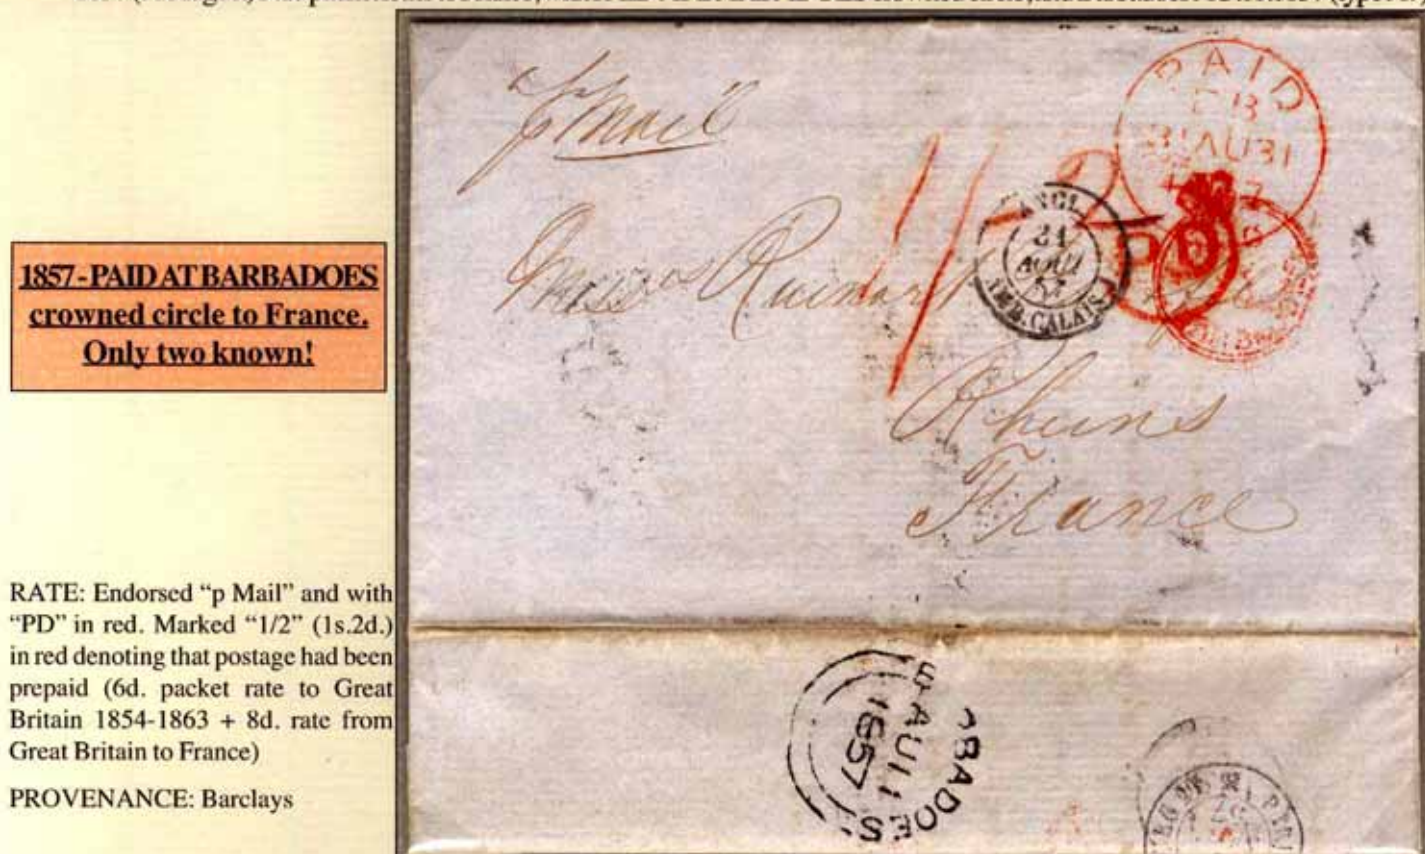 1857-PAID AT BARBADOES
crowned circle to France.
Only two known!
RATE: Endorsed “p Mail” and with
“PD” in red. Marked “1/2” (1s.2d.)
in red denoting that postage had been
prepaid (6d. packet rate to Great
Britain 1854-1863 + 8d. rate from
Great Britain to France)
PROVENANCE: Barclays
p Mail
PAID
31 AU 31
1/2
ANGL.
AOUT
57
AMB. CALAIS
PD
Rheims
France
AU 11
1857